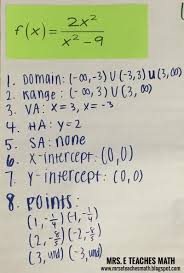 f(x) = 2x² / x² - 9
1. Domain: (-∞,-3) U (-3,3) U (3,∞)
2. Range: (-∞,3) U (3,∞)
3. VA: x=3, x=-3
4. HA: y=2
5. SA: none
6. X-intercept: (0,0)
7. Y-intercept: (0,0)
8. Points:
(1,-1/4) (-1,-1/4)
(2,-8/5) (-2,-8/5)
(3, und) (-3, und)
MRS. E TEACHES MATH
www.mrseteachesmath.blogspot.com